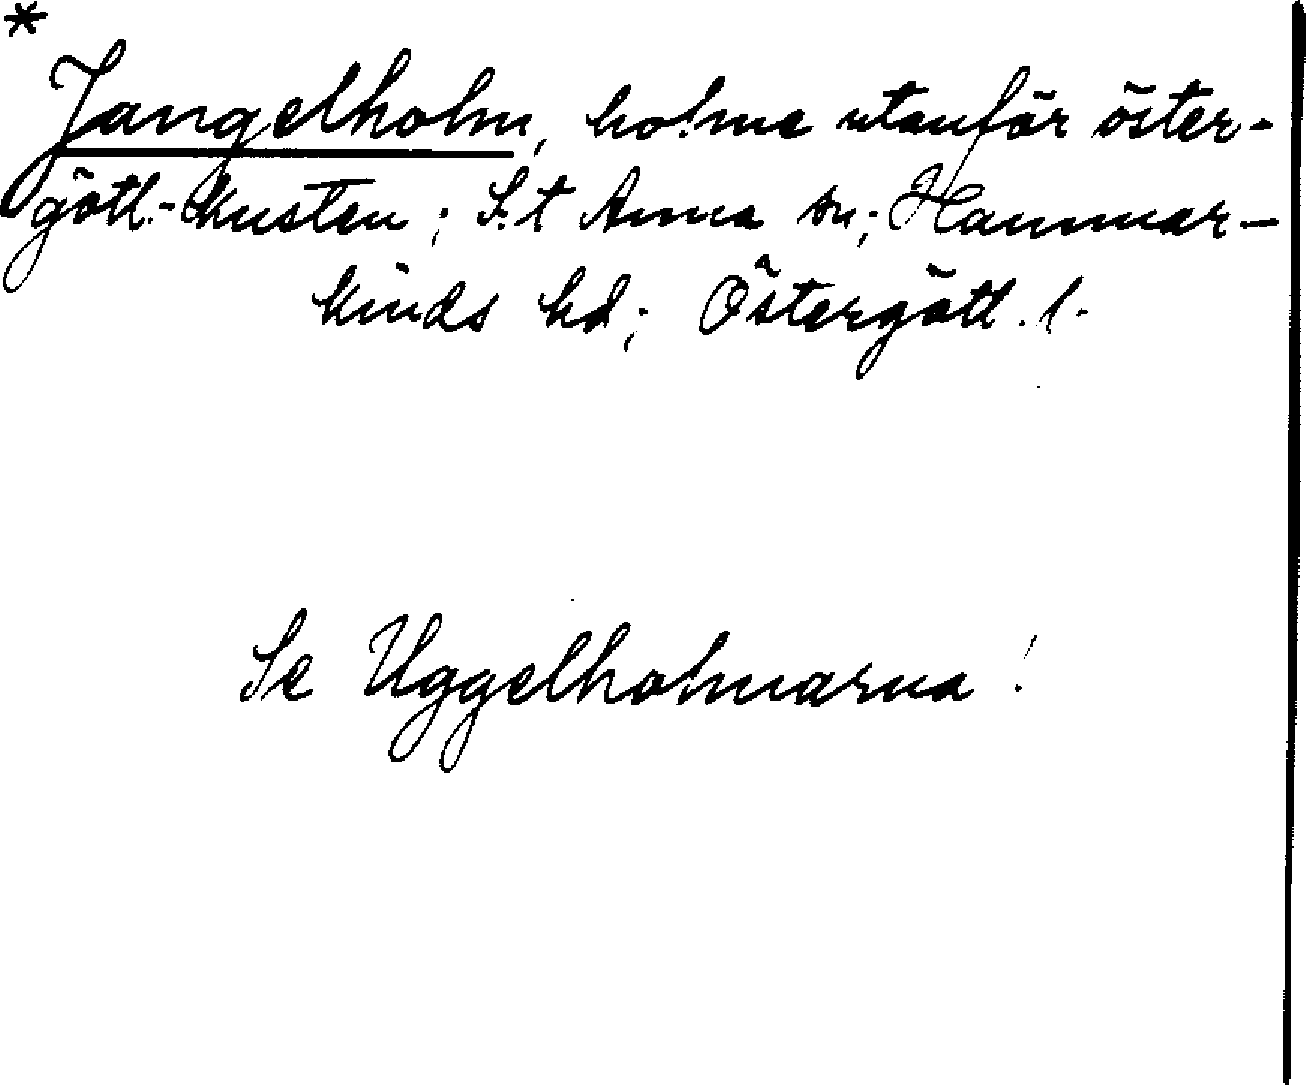 *
Jangelholm, holme utanför öster-
götl.-kusten; S:t Anna sn; Hammar-
kinds hd; Östergötl. l.
Se Uggelholmarna!